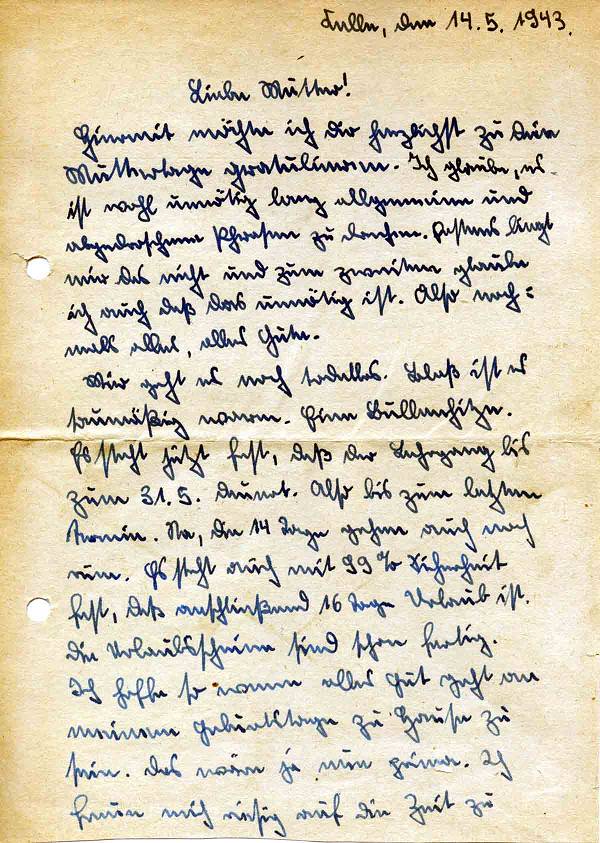 Tulln, den 14.5.1943.
Liebe Mutter!
Hiermit möchte ich dir herzlichst zu dein
Muttertage gratulieren. Ich glaube, es
ist wohl unnötig lang allgemeine und
abgedroschene Phrasen zu dreschen. Erstens liegt
mir das nicht und zum zweiten glaube
ich auch daß das unnötig ist. Also noch=
mals alles, alles Gute.
Mir geht es noch tadellos. Bloß ist es
saumäßig warm. Eine Bullenhitze.
Es steht jetzt fest, daß der Lehrgang bis
zum 31.5. dauert. Also bis zum letzten
Termin. Na, die 14 Tage gehen auch noch
rum. Es steht auch mit 99% Sicherheit
fest, daß anschließend 16 Tage Urlaub ist.
Die Urlaubsscheine sind schon fertig.
Ich hoffe so wenn alles gut geht an
meinem Geburtstage zu Hause zu
sein. Das wäre ja nun prima. Ich
freue mich riesig auf die Zeit zu